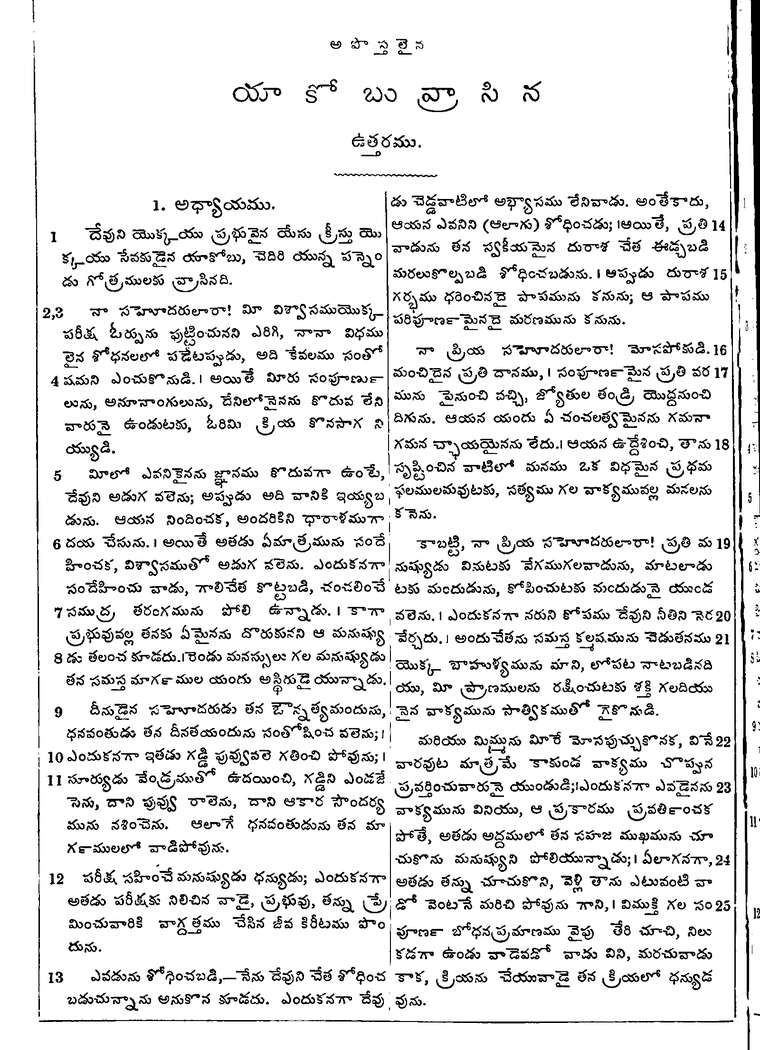 అపొస్తలైన
యాకోబు వ్రాసిన
ఉత్తరము.
1. అధ్యాయము.
1 దేవుని యొక్కయు ప్రభువైన యేసు క్రీస్తు యొ
క్కయు సేవకుడైన యాకోబు, చెదిరి యున్న పన్నెం
డు గోత్రములకు వ్రాసినది.
2,3 నా సహెూదరులారా! మీ విశ్వాసముయొక్క
పరీక్ష ఓర్పును పుట్టించునని ఎరిగి, నానా విధము
లైన శోధనలలో పడేటప్పుడు, అది కేవలము సంతో
4 షమని ఎంచుకొనుడి.। అయితే మీరు సంపూర్ణు
లును, అనూనాంగులును, దేనిలోనైనను కొదువ లేని
వారునై ఉండుటకు, ఓరిమి క్రియ కొనసాగ ని
య్యుడి.
5 మీలో ఎవనికైనను జ్ఞానము కొదువగా ఉంటే,
దేవుని అడుగ వలెను; అప్పుడు అది వానికి ఇయ్యబ
డును. ఆయన నిందించక, అందరికిని ధారాళముగా
6 దయ చేసును.। అయితే అతడు ఏమాత్రమును సందే
హించక, విశ్వాసముతో అడుగ వలెను. ఎందుకనగా
సందేహించు వాడు, గాలిచేత కొట్టబడి, చంచలించే
7 సముద్ర తరంగమును పోలి ఉన్నాడు.। కాగా
ప్రభువువల్ల తనకు ఏమైనను దొరుకునని ఆ మనుష్యు
8 డు తలంచ కూడదు.।రెండు మనస్సులు గల మనుష్యుడు
తన సమస్త మార్గముల యందు అస్థిరుడై యున్నాడు.
9 దీనుడైన సహెూదరుడు తన ఔన్నత్యమందును,
ధనవంతుడు తన దీనతయందును సంతోషించ వలెను;।
10 ఎందుకనగా ఇతడు గడ్డి పువ్వువలె గతించి పోవును;।
11 సూర్యుడు వేండ్రముతో ఉదయించి, గడ్డిని ఎండజే
సెను, దాని పువ్వు రాలెను, దాని ఆకార సౌందర్య
మును నశించెను. ఆలాగే ధనవంతుడును తన మా
ర్గములలో వాడిపోవును.
12 పరీక్ష సహించే మనుష్యుడు ధన్యుడు; ఎందుకనగా
అతడు పరీక్షకు నిలిచిన వాడై, ప్రభువు, తన్ను ప్రే
మించువారికి వాగ్దత్తము చేసిన జీవ కిరీటము పొం
దును.
13 ఎవడును శోధించబడి,—నేను దేవుని చేత శోధించ
బడుచున్నాను అనుకొన కూడదు. ఎందుకనగా దేవు
డు చెడ్డవాటిలో అభ్యాసము లేనివాడు. అంతేకాదు,
ఆయన ఎవనిని (ఆలాగు) శోధించడు;।ఆయితే, ప్రతి 14
వాడును తన స్వకీయమైన దురాశ చేత ఈడ్చబడి
మరలుకొల్పబడి శోధించబడును.। అప్పుడు దురాశ 15
గర్భము ధరించినదై పాపమును కనును; ఆ పాపము
పరిపూర్ణమైనదై మరణమును కనును.
నా ప్రియ సహెూదరులారా! మోసపోకుడి. 16
మంచిదైన ప్రతి దానము,। సంపూర్ణమైన ప్రతి వర 17
మును పైనుంచి వచ్చి, జ్యోతుల తండ్రి యొద్దనుంచి
దిగును. ఆయన యందు ఏ చంచలత్వమైనను గమనా
గమన చ్ఛాయయైనను లేదు.। ఆయన ఉద్దేశించి, తాను 18
సృష్టించిన వాటిలో మనము ఒక విధమైన ప్రథమ
ఫలములమవుటకు, సత్యము గల వాక్యమువల్ల మనలను
కనెను.
కాబట్టి, నా ప్రియ సహెూదరులారా! ప్రతి మ 19
నుష్యుడు వినుటకు వేగముగలవాడును, మాటలాడు
టకు మందుడును, కోపించుటకు మందుడునై యుండ
వలెను.। ఎందుకనగా నరుని కోపము దేవుని నీతిని నెర 20
వేర్చదు.। అందుచేతను సమస్త కల్మషమును చెడుతనము 21
యొక్క బాహుళ్యమును మాని, లోపట నాటబడినది
యు, మీ ప్రాణములను రక్షించుటకు శక్తి గలదియు
నైన వాక్యమును సాత్వికముతో గైకొనుడి.
మరియు మిమ్మును మీరే మోసపుచ్చుకొనక, వినే 22
వారవుట మాత్రమే కాకుండ వాక్యము చొప్పున
ప్రవర్తించువారునై యుండుడి;।ఎందుకనగా ఎవడైనను 23
వాక్యమును వినియు, ఆ ప్రకారము ప్రవర్తించక
పోతే, అతడు అద్దములో తన సహజ ముఖమును చూ
చుకొను మనుష్యుని పోలియున్నాడు;। ఏలాగనగా, 24
అతడు తన్ను చూచుకొని, వెళ్లి తాను ఎటువంటి వా
డో వెంటనే మరిచి పోవును గాని,। విముక్తి గల సం 25
పూర్ణ బోధనప్రమాణము వైపు తేరి చూచి, నిలు
కడగా ఉండు వాడెవడో వాడు విని, మరచువాడు
కాక, క్రియను చేయువాడై తన క్రియలో ధన్యుడ
వును.